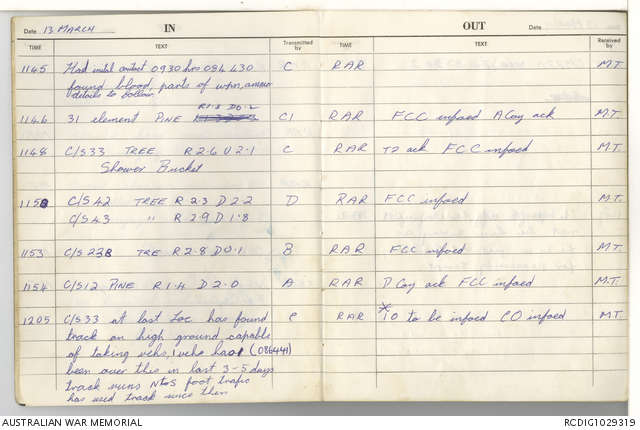 Date 13 MARCH IN
OUT Date
TIME TEXT Transmitted by TIME TEXT Received by
1145 Had initial contact 0930 hrs 084430 C RAR M.T.
found blood, parts of wpn, ammo
details to follow
R1.8 D0.2
1146 31 element PINE C1 RAR FCC infoed A Coy ack M.T.
1148 C/S33 TREE R2.6 U2.1 C RAR T2 ack FCC infoed M.T.
Shower Bucket
1150 C/S42 TREE R2.3 D2.2 D RAR FCC infoed M.T.
C/S43 " R2.9 D1.8
1153 C/S23B TRE R2.8 D0.1 B RAR FCC infoed M.T.
1154 C/S12 PINE R1.4 D2.0 A RAR D Coy ack FCC infoed M.T.
1205 C/S33 at last Loc has found C RAR *IO to be infoed CO infoed M.T.
track on high ground capable
of taking vehs, 1 veh has (086441)
been over this in last 3-5 days
track runs N to S foot trafic
has used track since then
AUSTRALIAN WAR MEMORIAL RCDIG1029319